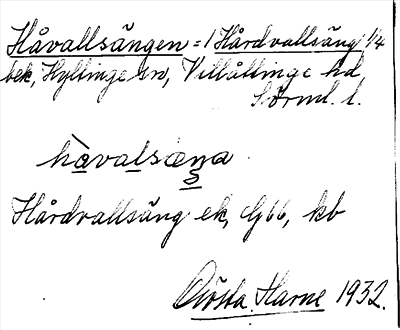 Håvallsängen = 1 Hårdvallsäng 1/4
bek, Hyltinge sn, Villåttinge hd,
Sörml. l.
hàvalsæŋa
Hårdvallsäng ek, G66, kb
Gösta Harne 1932.